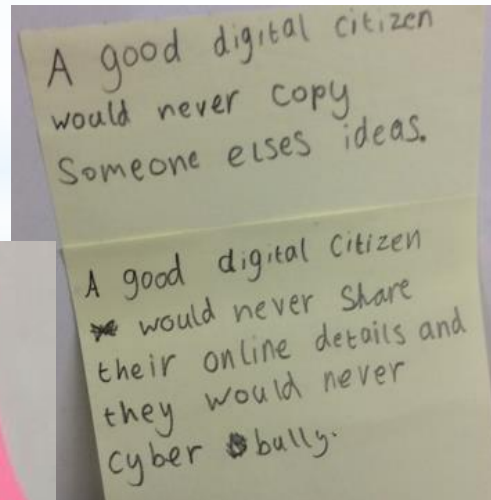 A good digital citizen
would never copy
Someone elses ideas.
A good digital citizen
would never Share
their online details and
they would never
cyber bully.